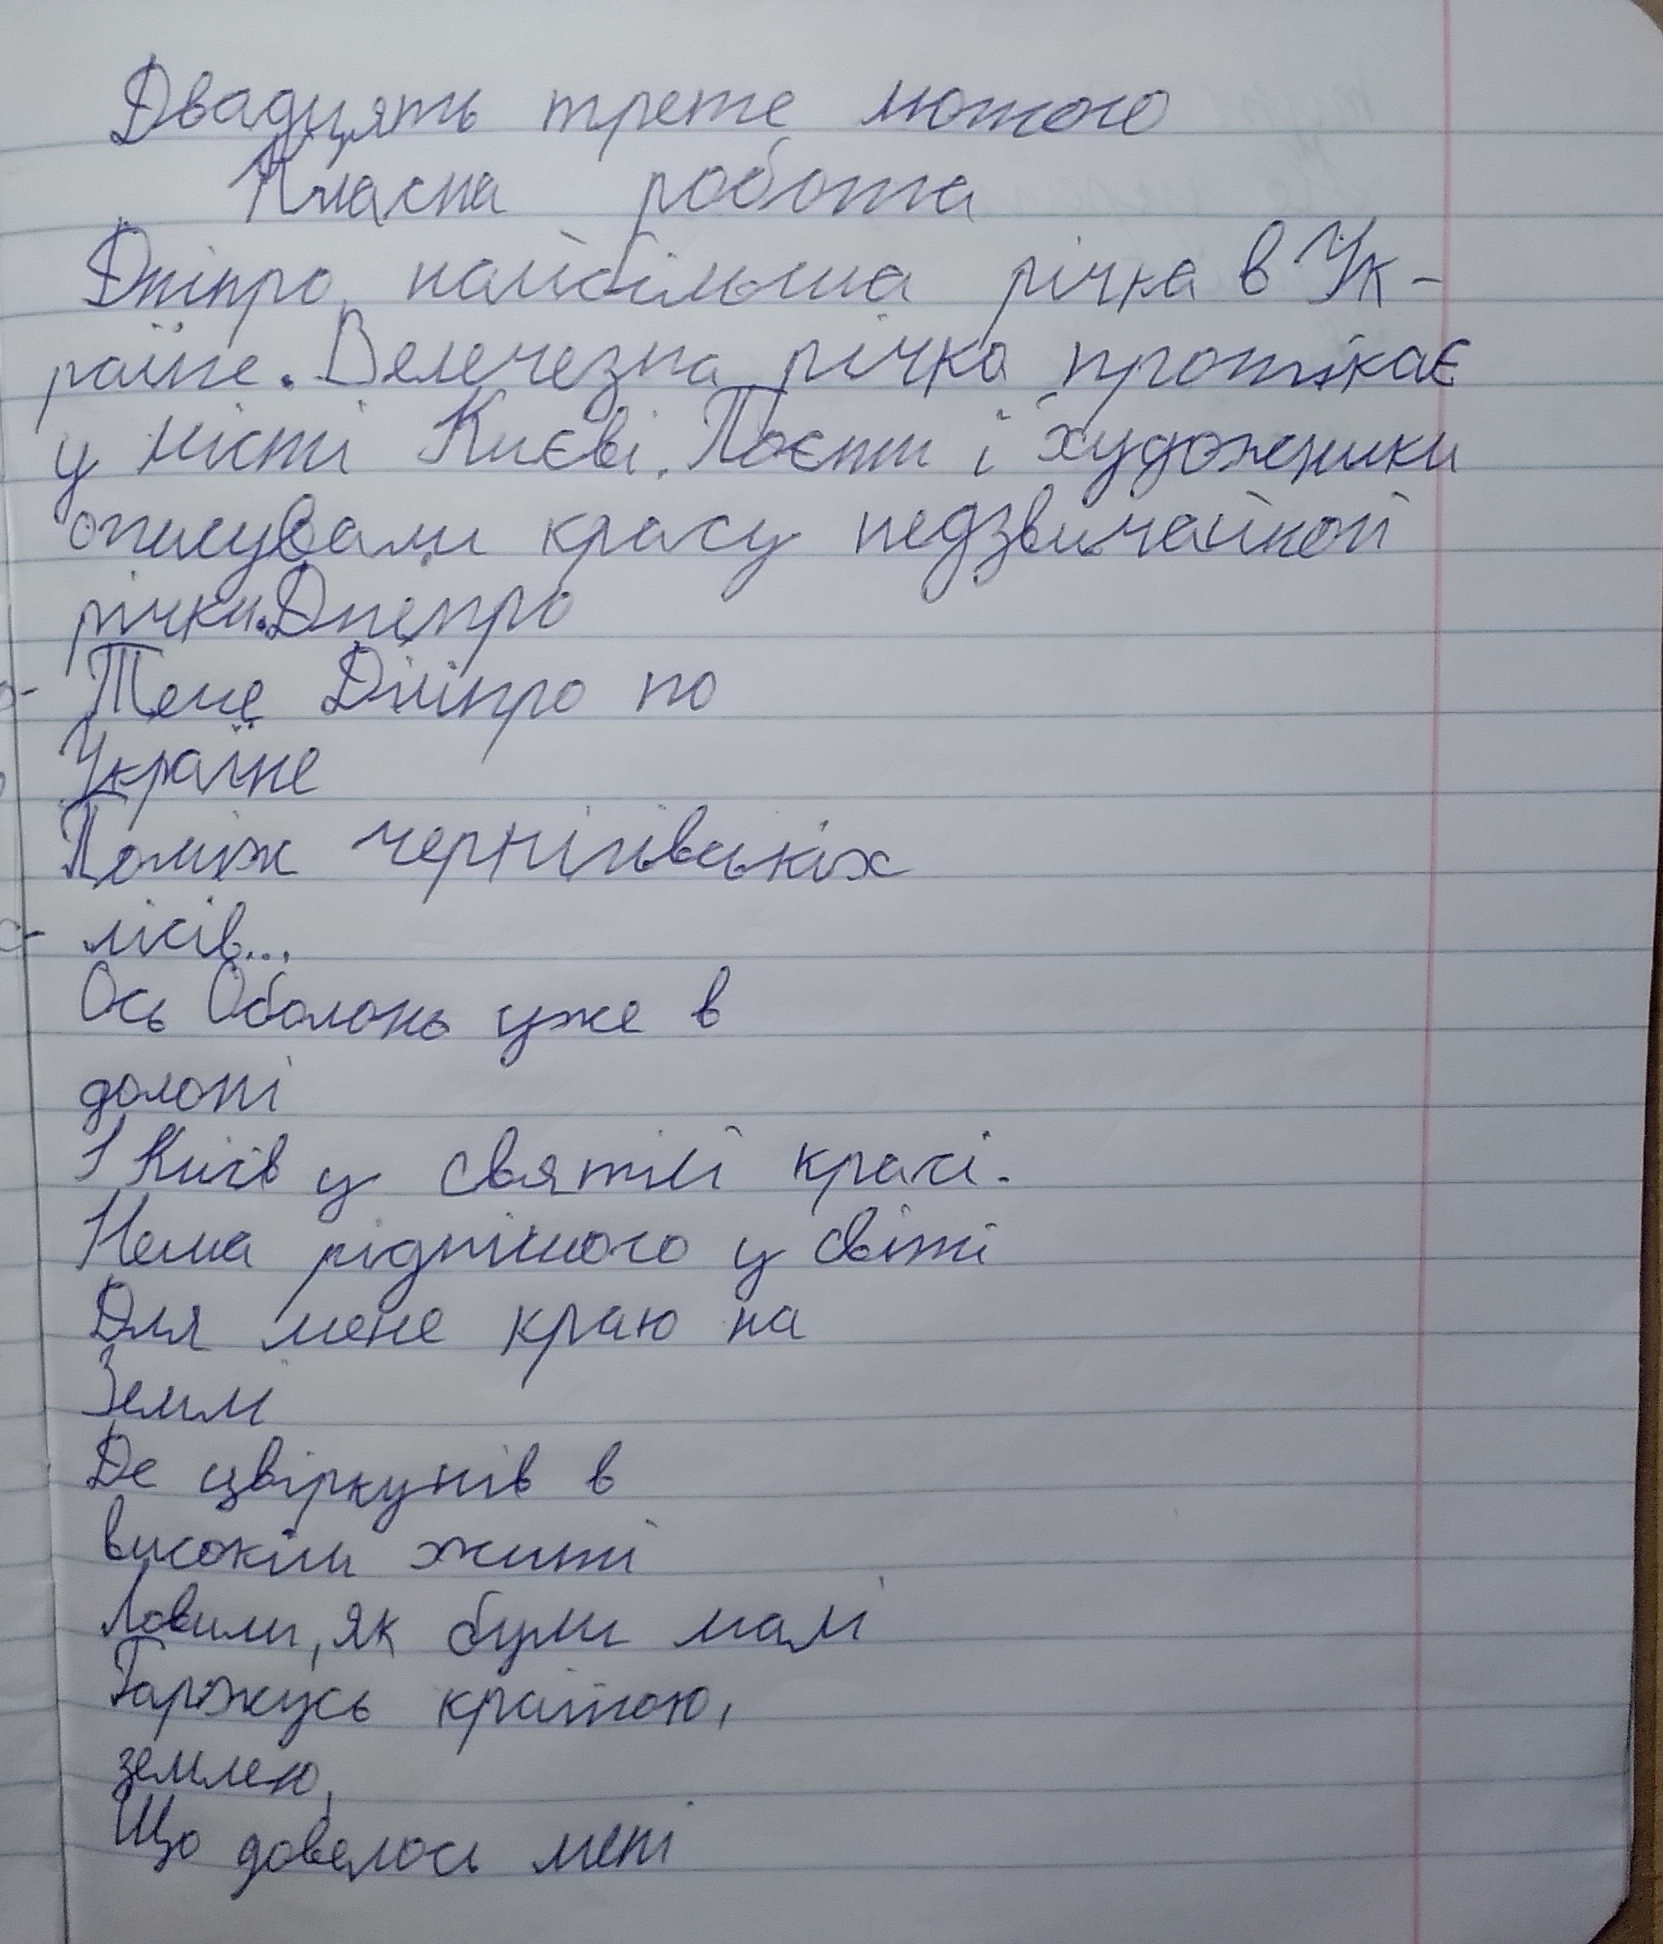 Двадцять трете лютого
Класна робота
Дніпро, найбільша річка в Ук-
раїне. Велечезна річка протікає
у місті Києві. Поєти і художники
описували красу недзвичайной
річки. Днепро
Тече Дніпро по
Україне
Поміж чернігівськіх
лісів...
Ось Оболонь уже в
долоні
І Київ у святій красі.
Нема ріднішого у світі
Для мене краю на
Землі
Де цвіркунів в
високім житі
Ловили, як були малі
Горжусь країною,
землею,
Що довелось мені